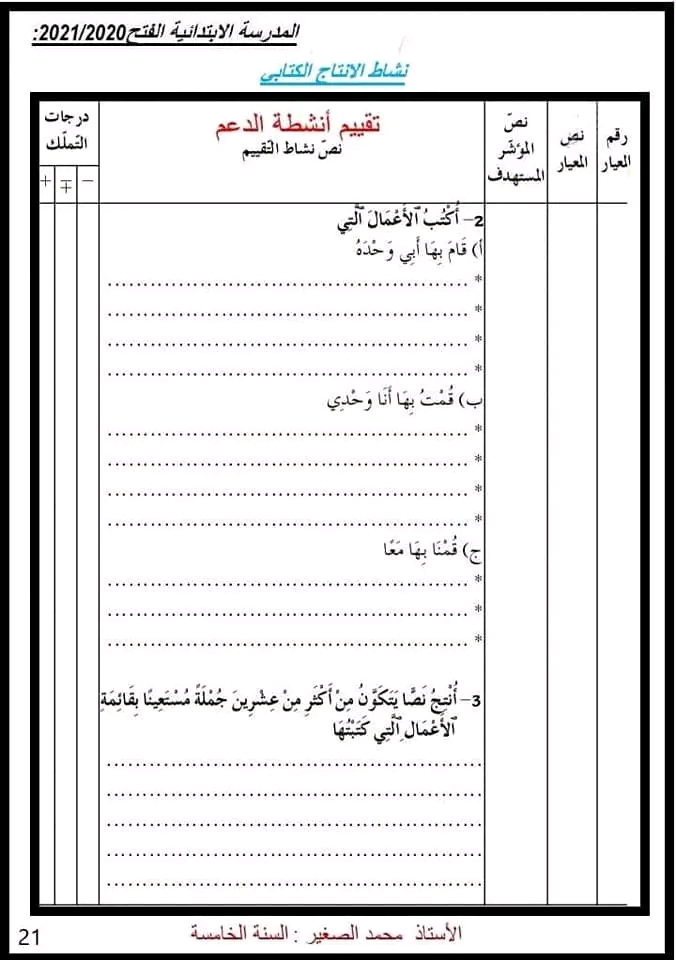 المدرسة الابتدائية الفتح2021/2020:
نشاط الانتاج الكتابي
رقم المعيار
نص المعيار
نصّ المؤشّر المستهدف
تقييم أنشطة الدعم
نصّ نشاط التّقييم
درجات التّملّك
− ∓ +
2– أَكْتُبُ ٱلْأَعْمَالَ ٱلَّتِي
أ) قَامَ بِهَا أَبِي وَحْدَهُ
* ................................................
* ................................................
* ................................................
* ................................................
ب) قُمْتُ بِهَا أَنَا وَحْدِي
* ................................................
* ................................................
* ................................................
* ................................................
ج) قُمْنَا بِهَا مَعًا
* ................................................
* ................................................
* ................................................
3– أُنْتِجُ نَصًّا يَتَكَوَّنُ مِنْ أَكْثَرِ مِنْ عِشْرِينَ جُمْلَةً مُسْتَعِينًا بِقَائِمَةِ
ٱلْأَعْمَالِ ٱلَّتِي كَتَبْتُهَا
..................................................
..................................................
..................................................
..................................................
..................................................
الأستاذ محمد الصغير : السنة الخامسة
21